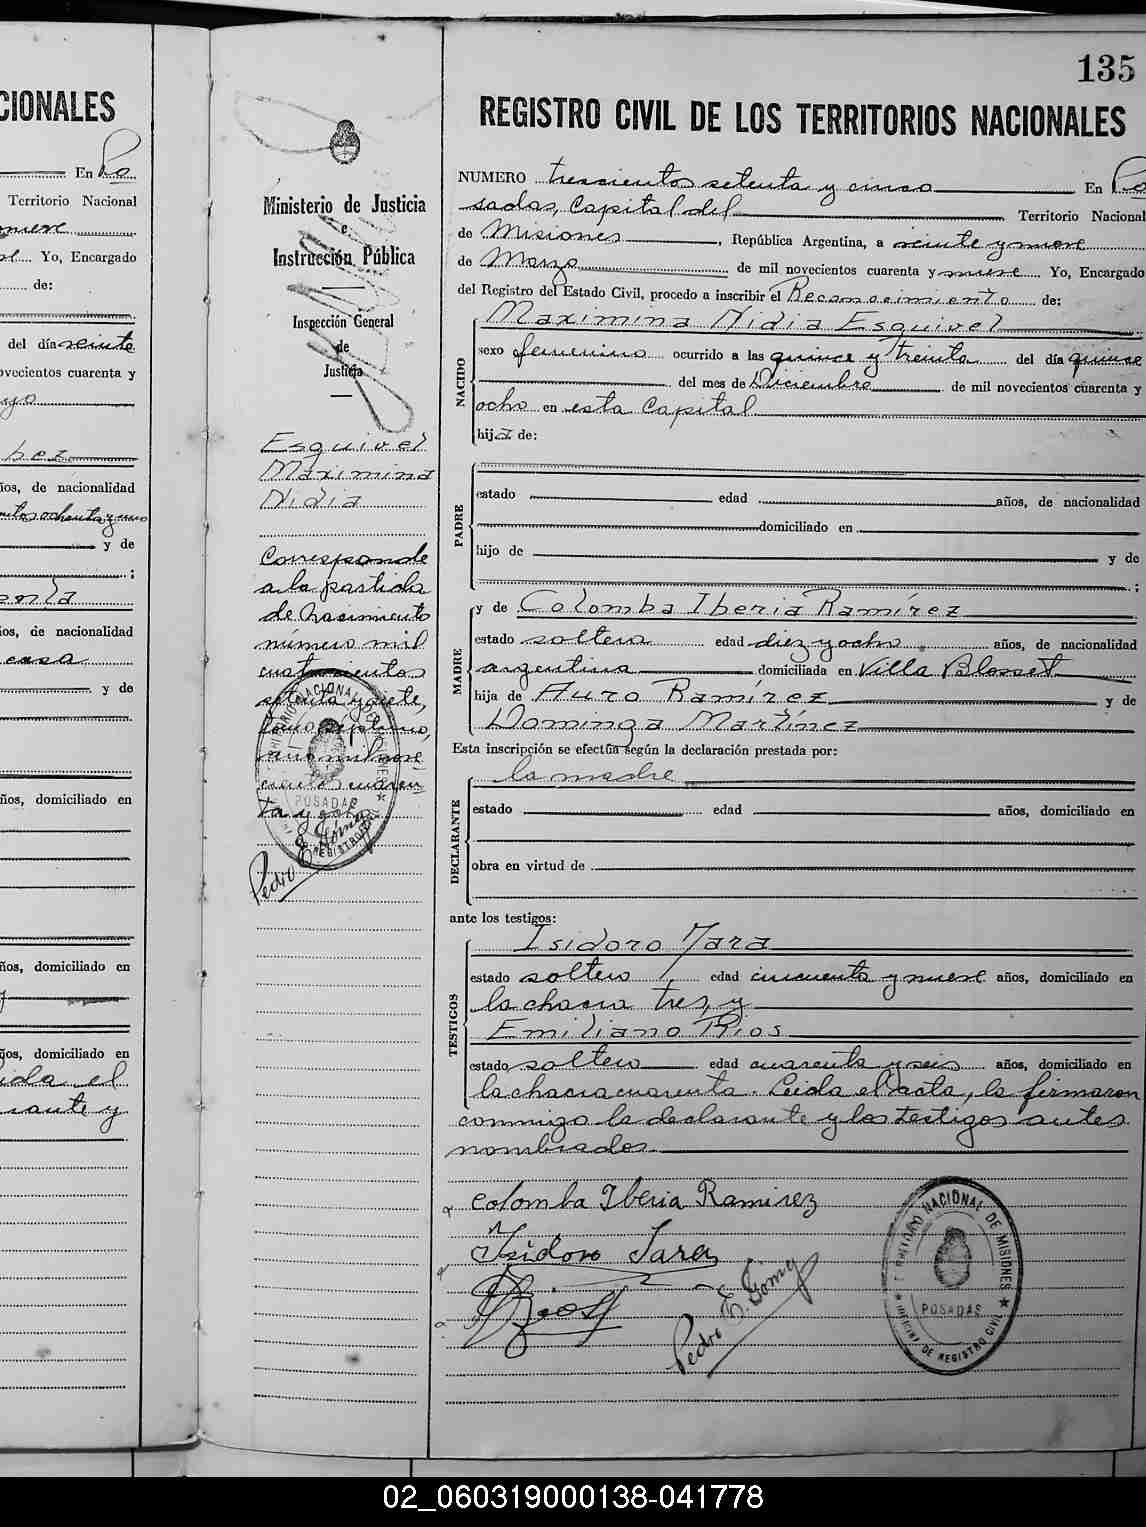 CIONALES
En Po
Territorio Nacional
Yo, Encargado
de:
del día veinte
ovecientos cuarenta y
ños, de nacionalidad
y de
;
ños, de nacionalidad
y de
ños, domiciliado en
ños, domiciliado en
ños, domiciliado en
Ministerio de Justicia
e
Instrucción Pública
Inspección General
de
Justicia
Esquivel
Maximina
Nidia
Corresponde
a la partida
de Nacimiento
número mil
cuatrocientos
setenta y siete,
tomo séptimo,
año mil nove
cientos cuaren
ta y ocho
Pedro E. Gómez
135
REGISTRO CIVIL DE LOS TERRITORIOS NACIONALES
NUMERO trescientos setenta y cinco En Po
sadas, Capital del Territorio Nacional
de Misiones, República Argentina, a veinte y nueve
de Marzo de mil novecientos cuarenta y nueve Yo, Encargado
del Registro del Estado Civil, procedo a inscribir el Reconocimiento de:
Maximina Nidia Esquivel
NACIDO
sexo femenino ocurrido a las quince y treinta del día quince
del mes de Diciembre de mil novecientos cuarenta y
ocho en esta Capital
hija de:
PADRE
estado edad años, de nacionalidad
domiciliado en
hijo de y de
;
MADRE
y de Colomba Iberia Ramírez
estado soltera edad diez y ocho años, de nacionalidad
argentina domiciliada en Villa Blosset
hija de Auro Ramírez y de
Dominga Martínez
Esta inscripción se efectúa según la declaración prestada por:
DECLARANTE
la madre
estado edad años, domiciliado en
obra en virtud de
ante los testigos:
TESTIGOS
Isidoro Jara
estado soltero edad cincuenta y nueve años, domiciliado en
la chacra tres, y
Emiliano Rios
estado soltero edad cuarenta y seis años, domiciliado en
la chacra cuarenta. Leida el acta, la firmaron
conmigo la declarante y los testigos antes
nombrados.
Colomba Iberia Ramirez
Isidoro Jara
ERios
Pedro E. Gómez
TERRITORIO NACIONAL DE MISIONES
POSADAS
OFICINA DE REGISTRO CIVIL
02_060319000138-041778